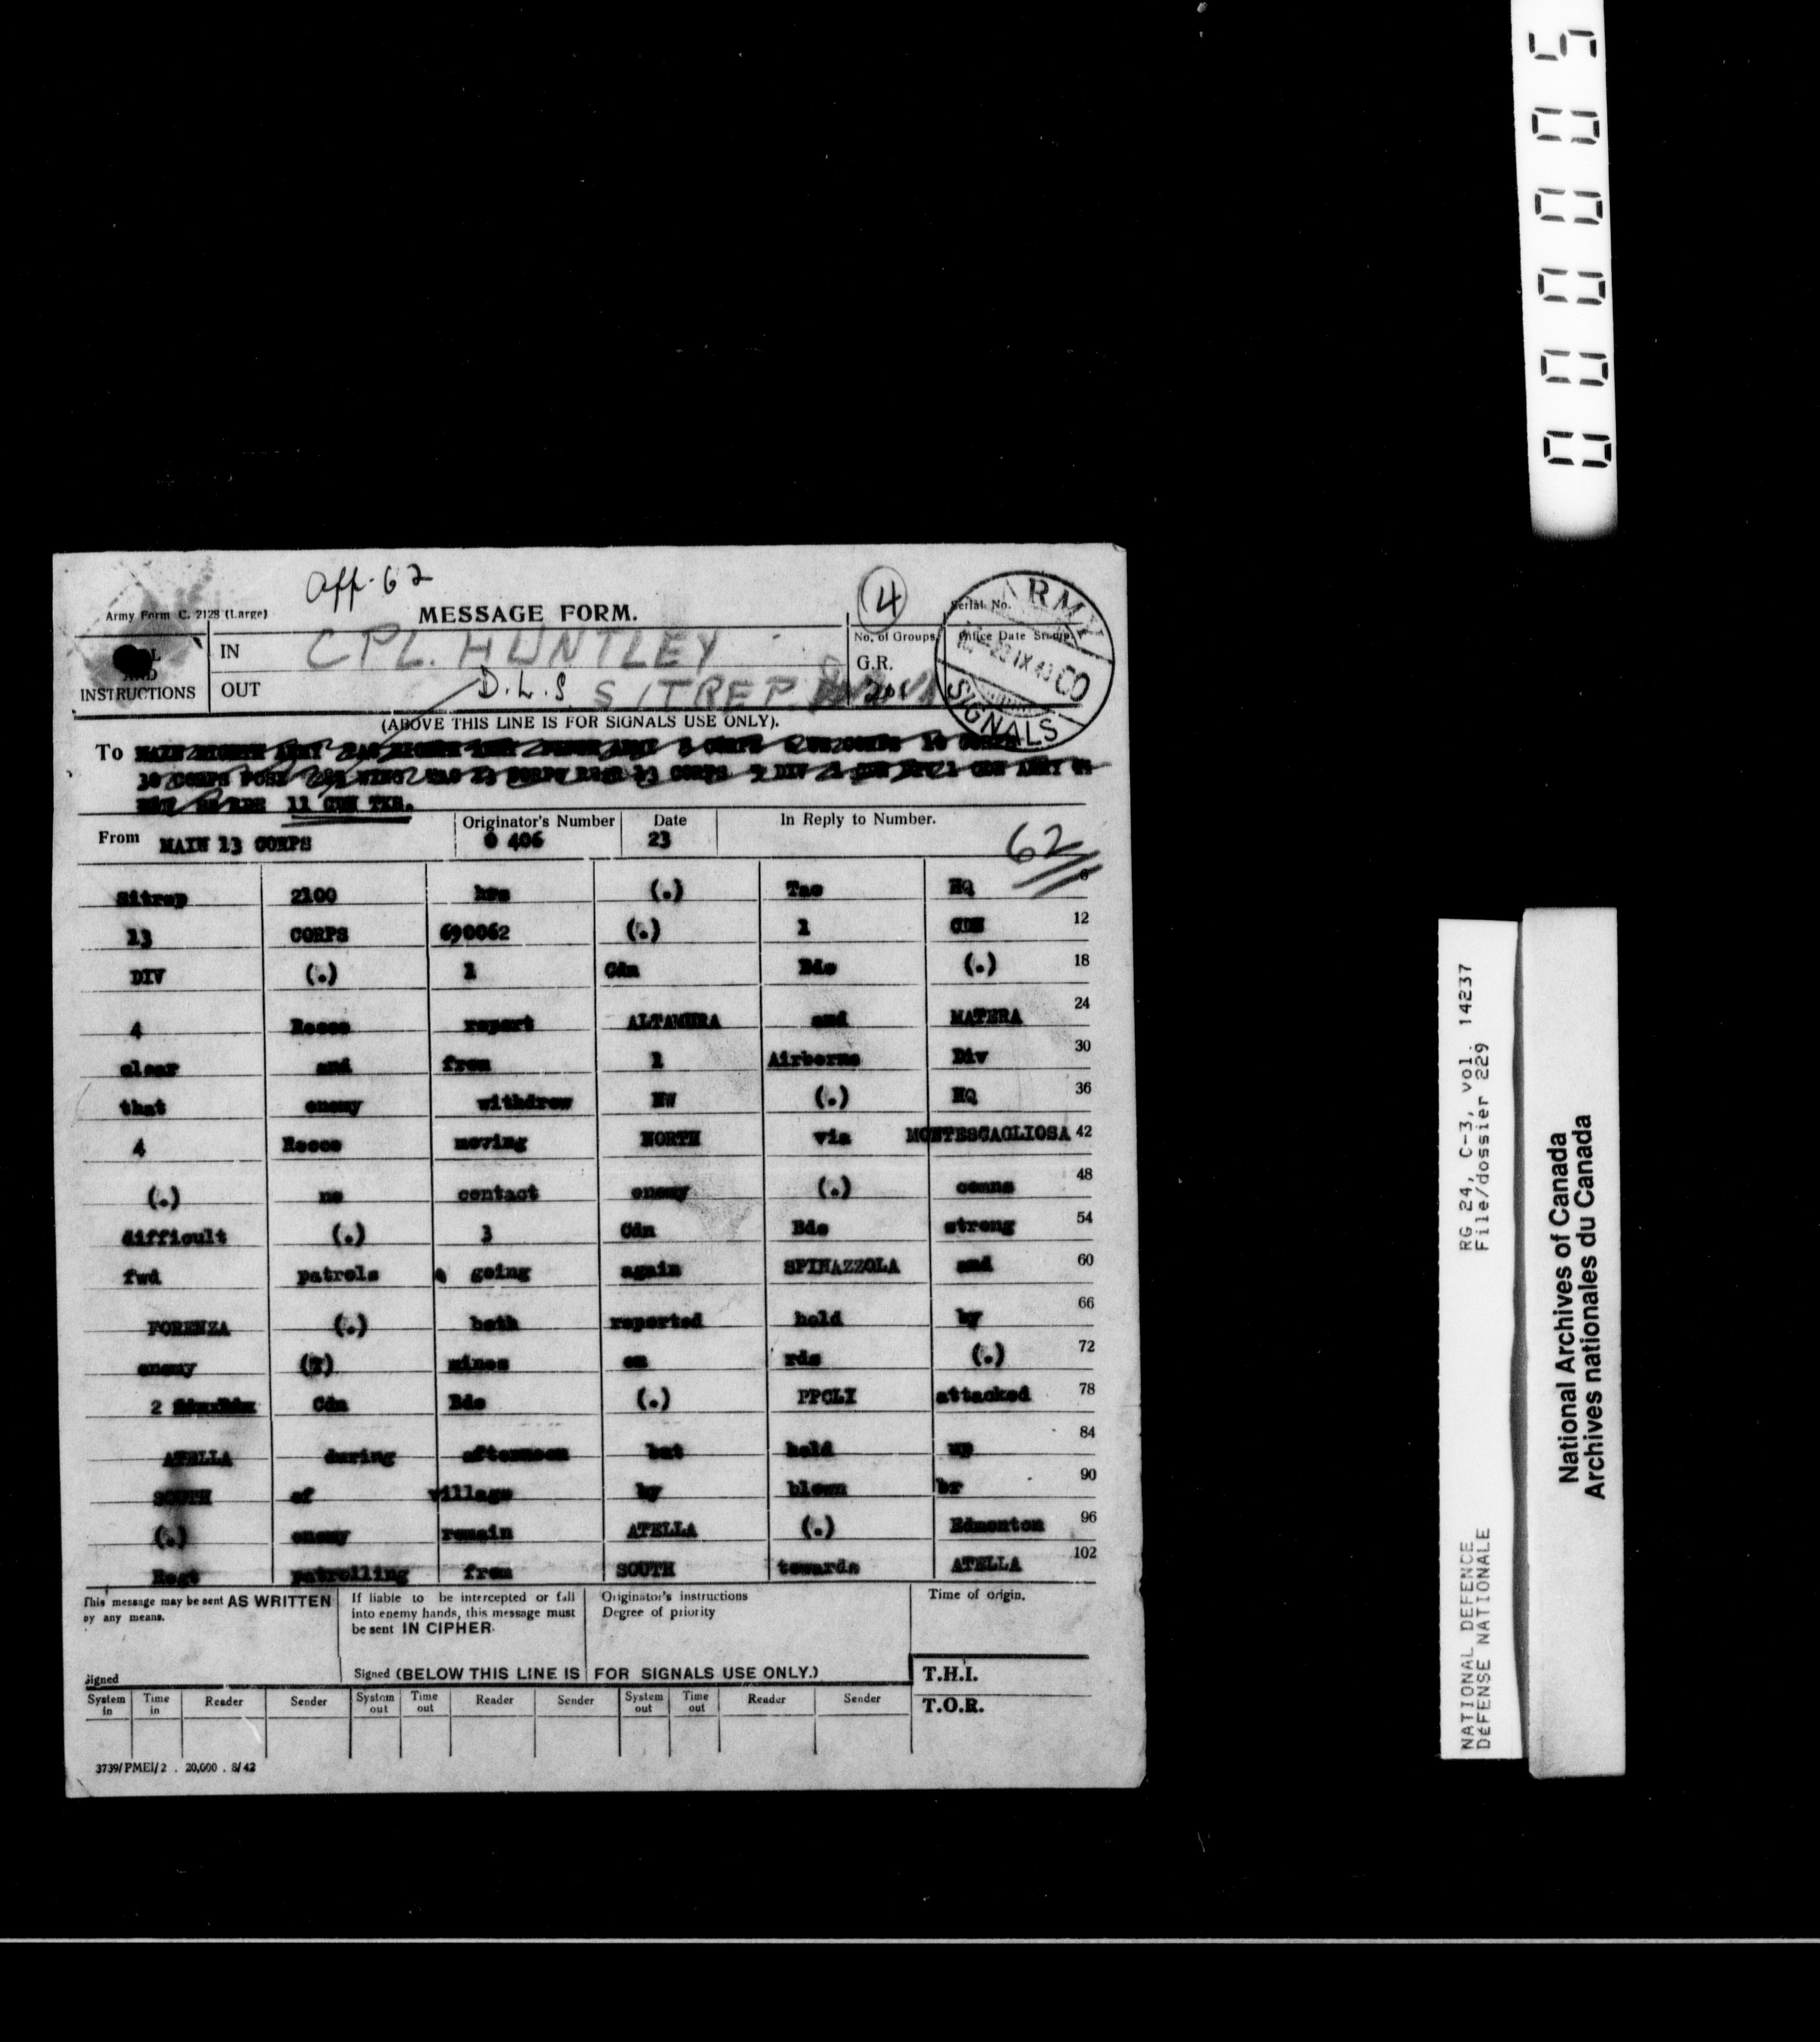 Aff. 62
Army Form C. 2128 (Large)
MESSAGE FORM.
4
Serial No.
IN
CPL. HUNTLEY
No. of Groups.
Office Date Stamp.
ARMY
SIGNALS
AND
INSTRUCTIONS
OUT
D.L.S
SITREP
G.R.
(ABOVE THIS LINE IS FOR SIGNALS USE ONLY).
To
11 CDN TKB.
From MAIN 13 CORPS
Originator's Number
0 406
Date
23
In Reply to Number.
62
Sitrep 2100 hrs (.) Tac HQ 6
13 CORPS 690062 (.) 1 CDN 12
DIV (.) 1 Cdn Bde (.) 18
4 Recce report ALTAMURA and MATERA 24
clear and from 1 Airborne Div 30
that enemy withdrew NW (.) HQ 36
4 Recce moving NORTH via MONTESCAGLIOSA 42
(.) no contact enemy (.) comns 48
difficult (.) 3 Cdn Bde strong 54
fwd patrols going again SPINAZZOLA and 60
FORENZA (.) both reported held by 66
enemy (?) mines on rds (.) 72
2 Cdn Bde (.) PPCLI attacked 78
ATELLA during afternoon but held up 84
SOUTH of village by blown br 90
(.) enemy remain ATELLA (.) Edmonton 96
Regt patrolling from SOUTH towards ATELLA 102
This message may be sent AS WRITTEN
by any means.
Signed
If liable to be intercepted or fall
into enemy hands, this message must
be sent IN CIPHER.
Signed
Originator's instructions
Degree of priority
Time of origin.
(BELOW THIS LINE IS FOR SIGNALS USE ONLY.)
T.H.I.
System in Time in Reader Sender System out Time out Reader Sender System out Time out Reader Sender
T.O.R.
3739/PMEI/2 . 20,000 . 8/42
000005
NATIONAL DEFENCE RG 24, C-3, vol. 14237
DÉFENSE NATIONALE File/dossier 229
National Archives of Canada
Archives nationales du Canada